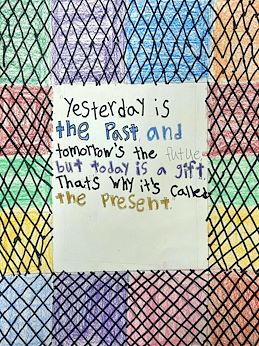 Yesterday is
the Past and
tomorrow's the futue
but today is a gift,
That's why it's called
the Present.